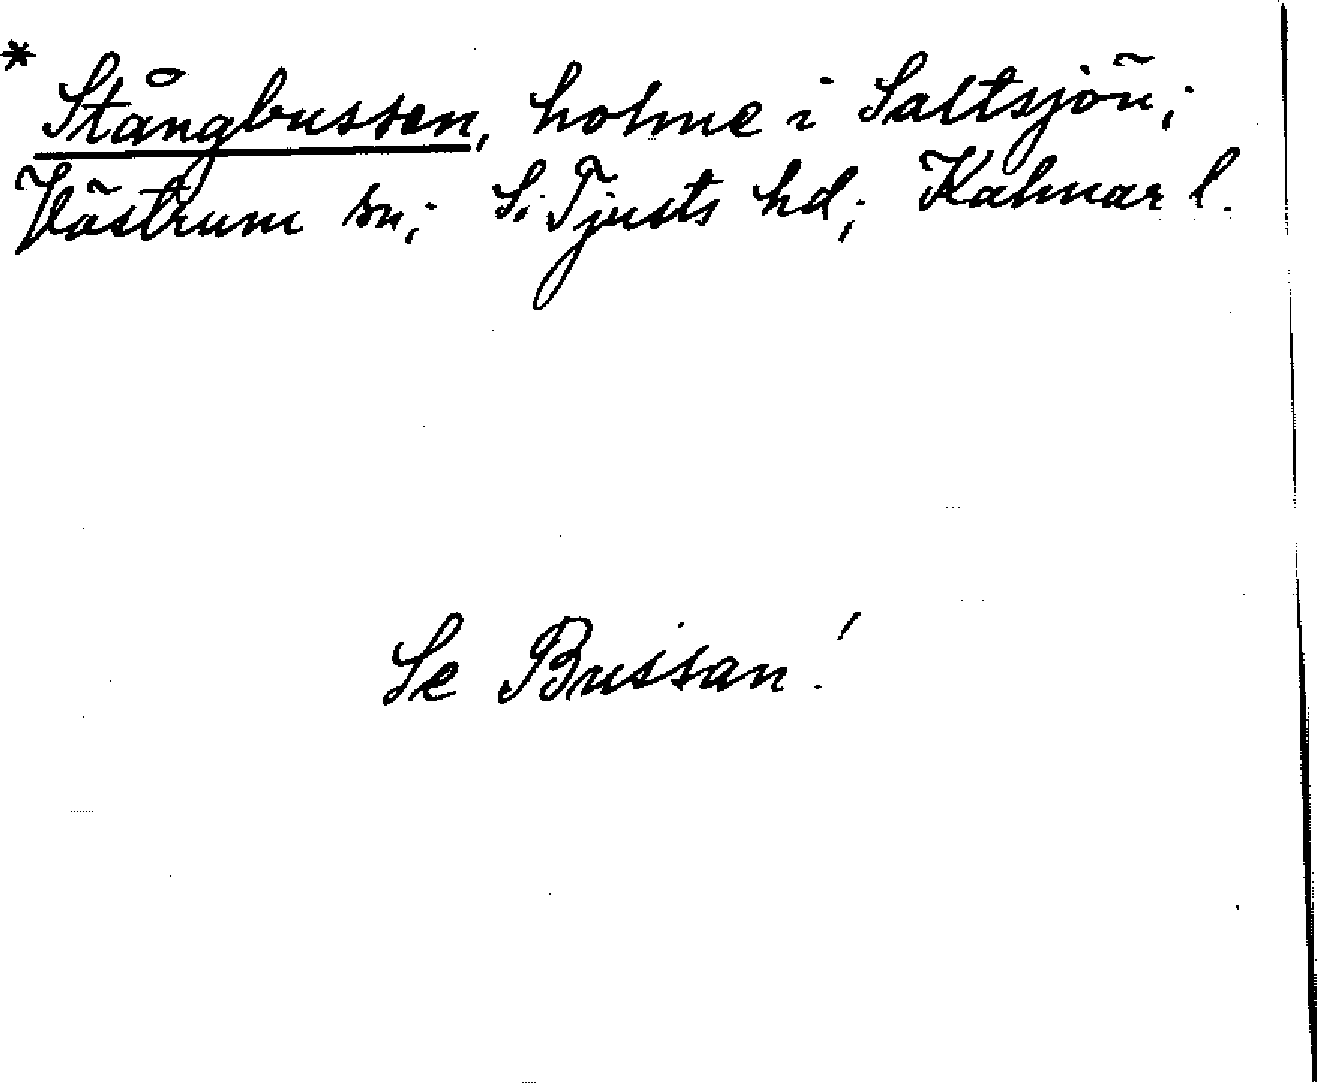 * Stångbussen, holme i Saltsjön;
Västrum sn; S. Tjusts hd; Kalmar l.
Se Bussan!